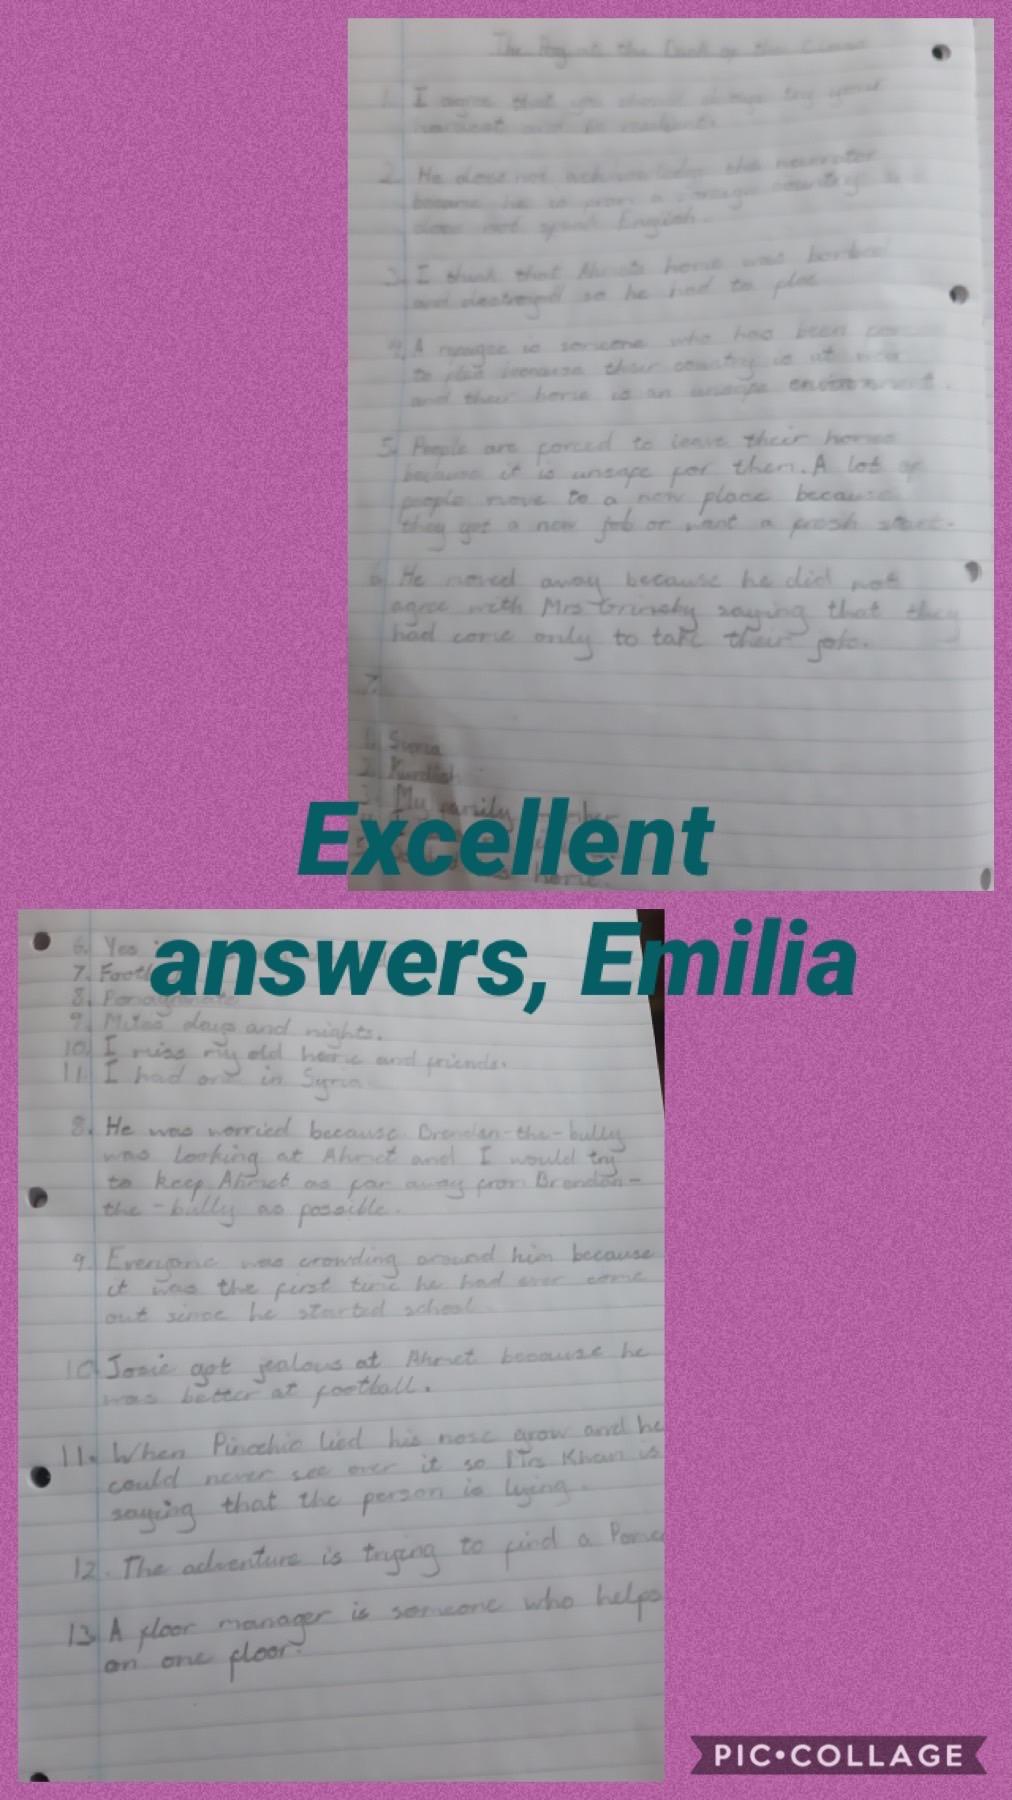 The Boy at the Back of the Class
1. I agree that you should always try your
hardest and be
2. He does not acknowledge the narrator
because he is from a country
does not speak English.
3. I think that Ahmets home was bombed
and destroyed so he had to flee
4. A refugee is someone who has been
to flee because their country is at war
and their home is an unsafe environment.
5. People are forced to leave their homes
because it is unsafe for them. A lot of
people move to a new place because
they got a new job or want a fresh start.
6. He moved away because he did not
agree with Mrs Grimsby saying that they
had come only to take their jobs.
7.
1. Syria
2. Kurdish
3. My family
home.
Excellent
answers, Emilia
6. Yes
7.
8.
9. days and nights.
10. I miss my old home and friends.
11. I had one in Syria
8. He was worried because Brendan-the-bully
was looking at Ahmet and I would try
to keep Ahmet as far away from Brendan-
the-bully as possible.
9. Everyone was crowding around him because
it was the first time he had ever come
out since he started school
10. Josie got jealous at Ahmet because he
was better at football.
11. When Pinochio lied his nose grow and he
could never see over it so Mrs Khan is
saying that the person is lying.
12. The adventure is trying to find a Pome
13. A floor manager is someone who helps
on one floor.
PIC•COLLAGE